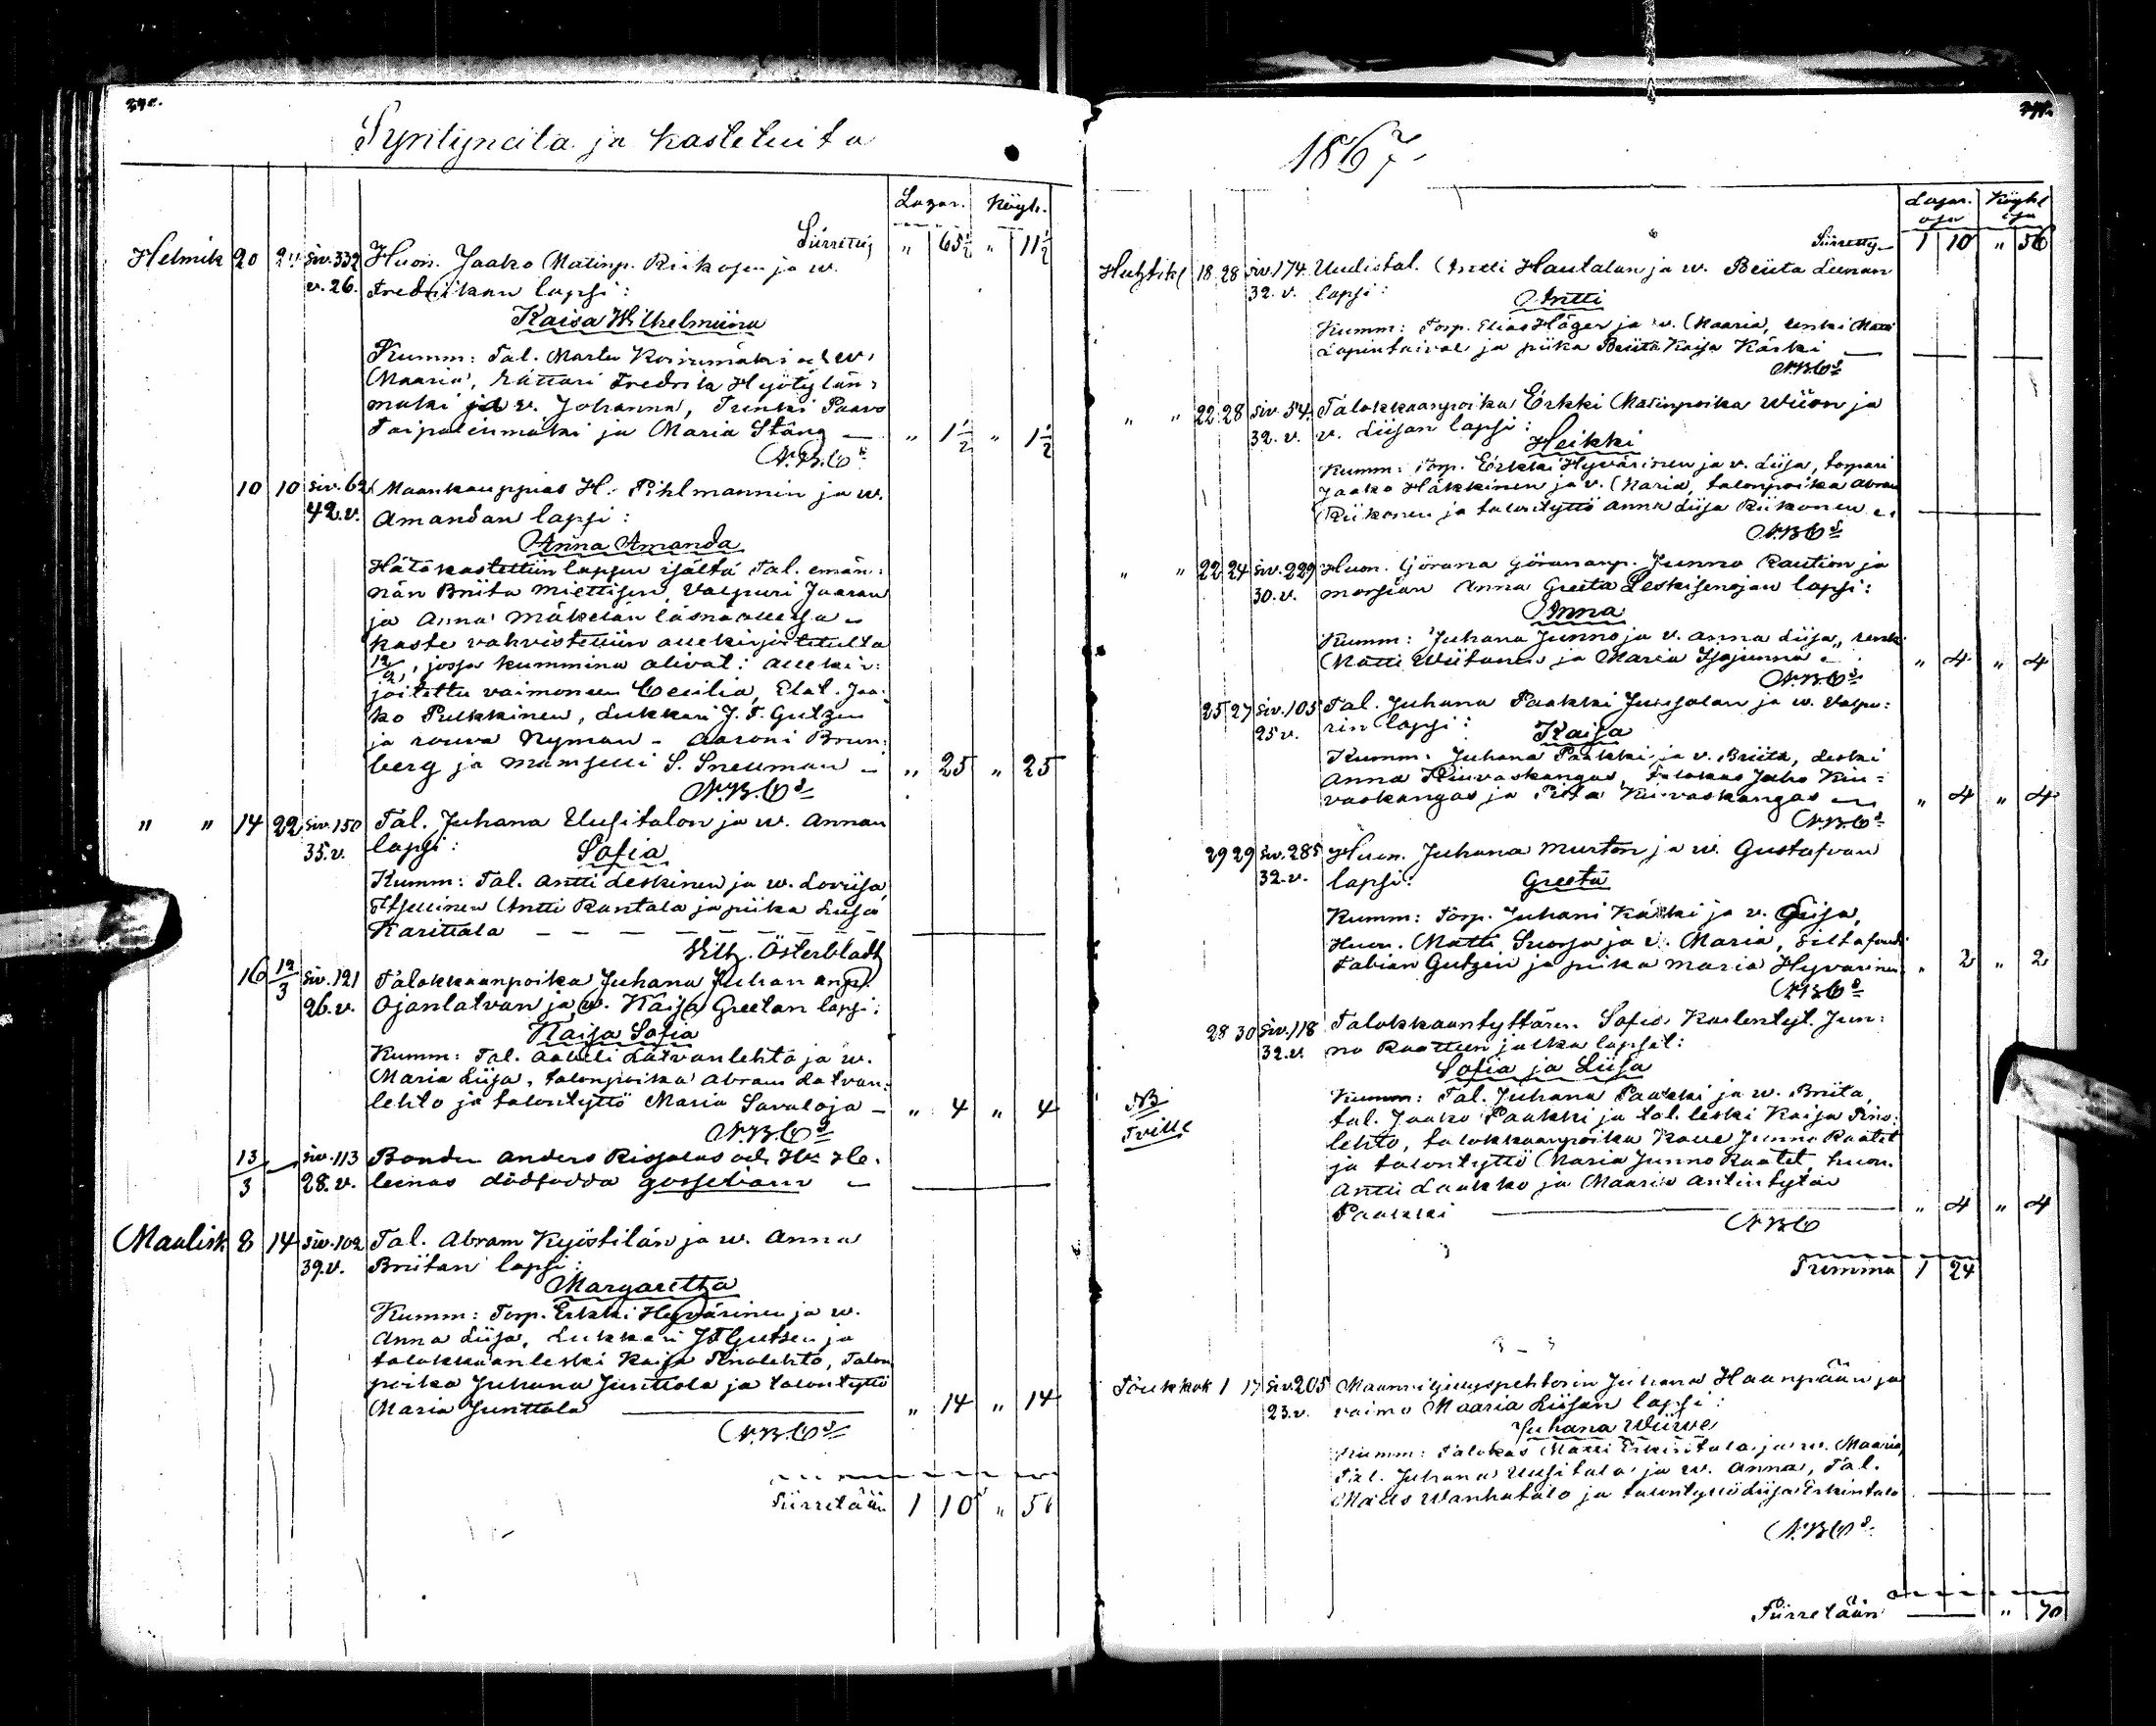 Syntyneitä ja kastetuita
Lazar. Köyh.
Siirretty „ 65½ „ 11½
Helmik 20 24 siv. 332 Huon. Jaako Matinp. Riikosen ja w.
v. 26. Fredrikan lapsi:
Kaisa Wilhelmiina
Kumm: Tal. Martu och w.
Maaria, Fredrik Hyötylän-
mäki ja v. Johanna, Paavo
Taipaleenmäki ja Maria Stång — „ 1½ „ 1½
N.B.C
10 10 siv. 62 Maankauppias H. Pihlmannin ja w.
42.v. Amandan lapsi:
Anna Amanda
Hätäkastettiin lapsen isältä Tal. emän-
nän Briita Miettisen, Valpuri Jaaran
ja Anna Mäkelän läsnäollessa
kaste vahvistettiin allekirjoitetulta
12/2, jossa kummina olivat: allekir-
joitettu vaimoneen Cecilia, Jaa-
ko Pulkkinen, Lukkari J. F. Gutzen
ja rouva Nyman — Aaroni Brun-
berg ja mamselli S. Snellman — „ 25 „ 25
N.B.C
„ „ 14 22 siv. 150 Tal. Juhana Uusitalon ja w. Annan
35.v. lapsi: Sofia
Kumm: Tal. Antti Leskinen ja w. Loviisa
Itsellinen Antti Rantala ja piika Luisa
Karittala — — — — — — —
Österbladh
16 12/3 siv. 121 Talokkaanpoika Juhana Juhananp.
26.v. Ojanlatvan ja w. Kaisa Greetan lapsi:
Kaisa Sofia
Kumm: Tal. Latvanlehto ja w.
Maria Liisa, talonpoika Abram Latvan-
lehto ja talontyttö Maria Savaloja — „ 4 „ 4
N.B.C
13/3 — siv. 113 Bonden Anders och H. He-
28.v. lenas dödfödda gossebarn —
Maalisk 8 14 siv. 102 Tal. Abram Kyöstilän ja w. Anna
39.v. Briitan lapsi:
Margaretha
Kumm: Torp. Erkki Hyvärinen ja w.
Anna Liisa, Lukkari J F Gutsen ja
talokkaanleski Kaisa Pinolehto, Talon
poika Juhana Junttola ja talontyttö
Maria Junttola — „ 14 „ 14
N.B.C
Siirretään 1 10 „ 56
1867.
Lazar. Köyhl
oja
Siirretty 1 10 „ 56
Huhtik 18 28 siv. 174 Uudistal. Antti Hautalan ja w. Briita Leenan
32. v. lapsi: Antti
Kumm: Torp. Elias Häger ja w. Maaria, renki Matti
Lapintaival ja piika Briita Kaisa Kärki
N.B.C
„ „ 22 28 siv. 54 Talokkaanpoika Erkki Matinpoika ja
32. v. v. Liisan lapsi:
Heikki
Kumm: Torp. Erkki Hyvärinen ja v. Liisa, torpari
Jaako Häkkinen ja v. Maria, talonpoika Abram
Riikonen ja talontyttö Anna Liisa Riikonen
N.B.C
„ „ 22 24 siv. 229 Huon. Görana Görananp. Junno Raution ja
30. v. morsian Anna Greeta Leskisenojan lapsi:
Anna
Kumm: Juhana Junno ja v. Anna Liisa, renki
Matti Wiitanen ja Maria „ 4 „ 4
N.B.C
25 27 siv. 105 Tal. Juhana Paakki Jussolan ja w. Valpu-
25 v. rin lapsi: Kaisa
Kumm: Juhana Paakki ja v. Briita, Leski
Anna Kiuvaskangas, talokas Jaako Kiu-
vaskangas ja Kiuvaskangas „ 4 „ 4
N.B.C
29 29 siv. 285 Huon. Juhana Murton ja w. Gustafvan
32.v. lapsi: Greeta
Kumm: Torp. Juhani Kärki ja v. Liisa,
Huon. Matti Suorsa ja v. Maria,
Fabian Gutzén ja piika Maria Hyvärinen „ 2 „ 2
N.B.C
28 30 siv. 118 Talokkaantyttären Sofia Jun-
32.v. no lapset:
Sofia ja Liisa
NB Kumm: Tal. Juhana Paakki ja w. Briita,
tal. Jaako Paakki ja tal. leski Kaisa Pino-
lehto, talokkaanpoika Kalle Junno Raatet
ja talontyttö Maria Junno Raatet, huon.
Antti Laakko ja Maaria Antintytär
Paakki — „ 4 „ 4
N.B.C
Summa 1 24
Toukkok 1 17 siv 205 Maanviljelyspehtorin Juhana Haanpään ja
23.v. vaimo Maaria Liisan lapsi:
Juhana
Kumm: Talokas Matti Erkintalo ja w. Maaria,
Tal. Juhana Uusitalo ja w. Anna, Tal.
Matts Wanhatalo ja talontyttö Liisa Erkintalo
N.B.C
Siirretään — „ 70